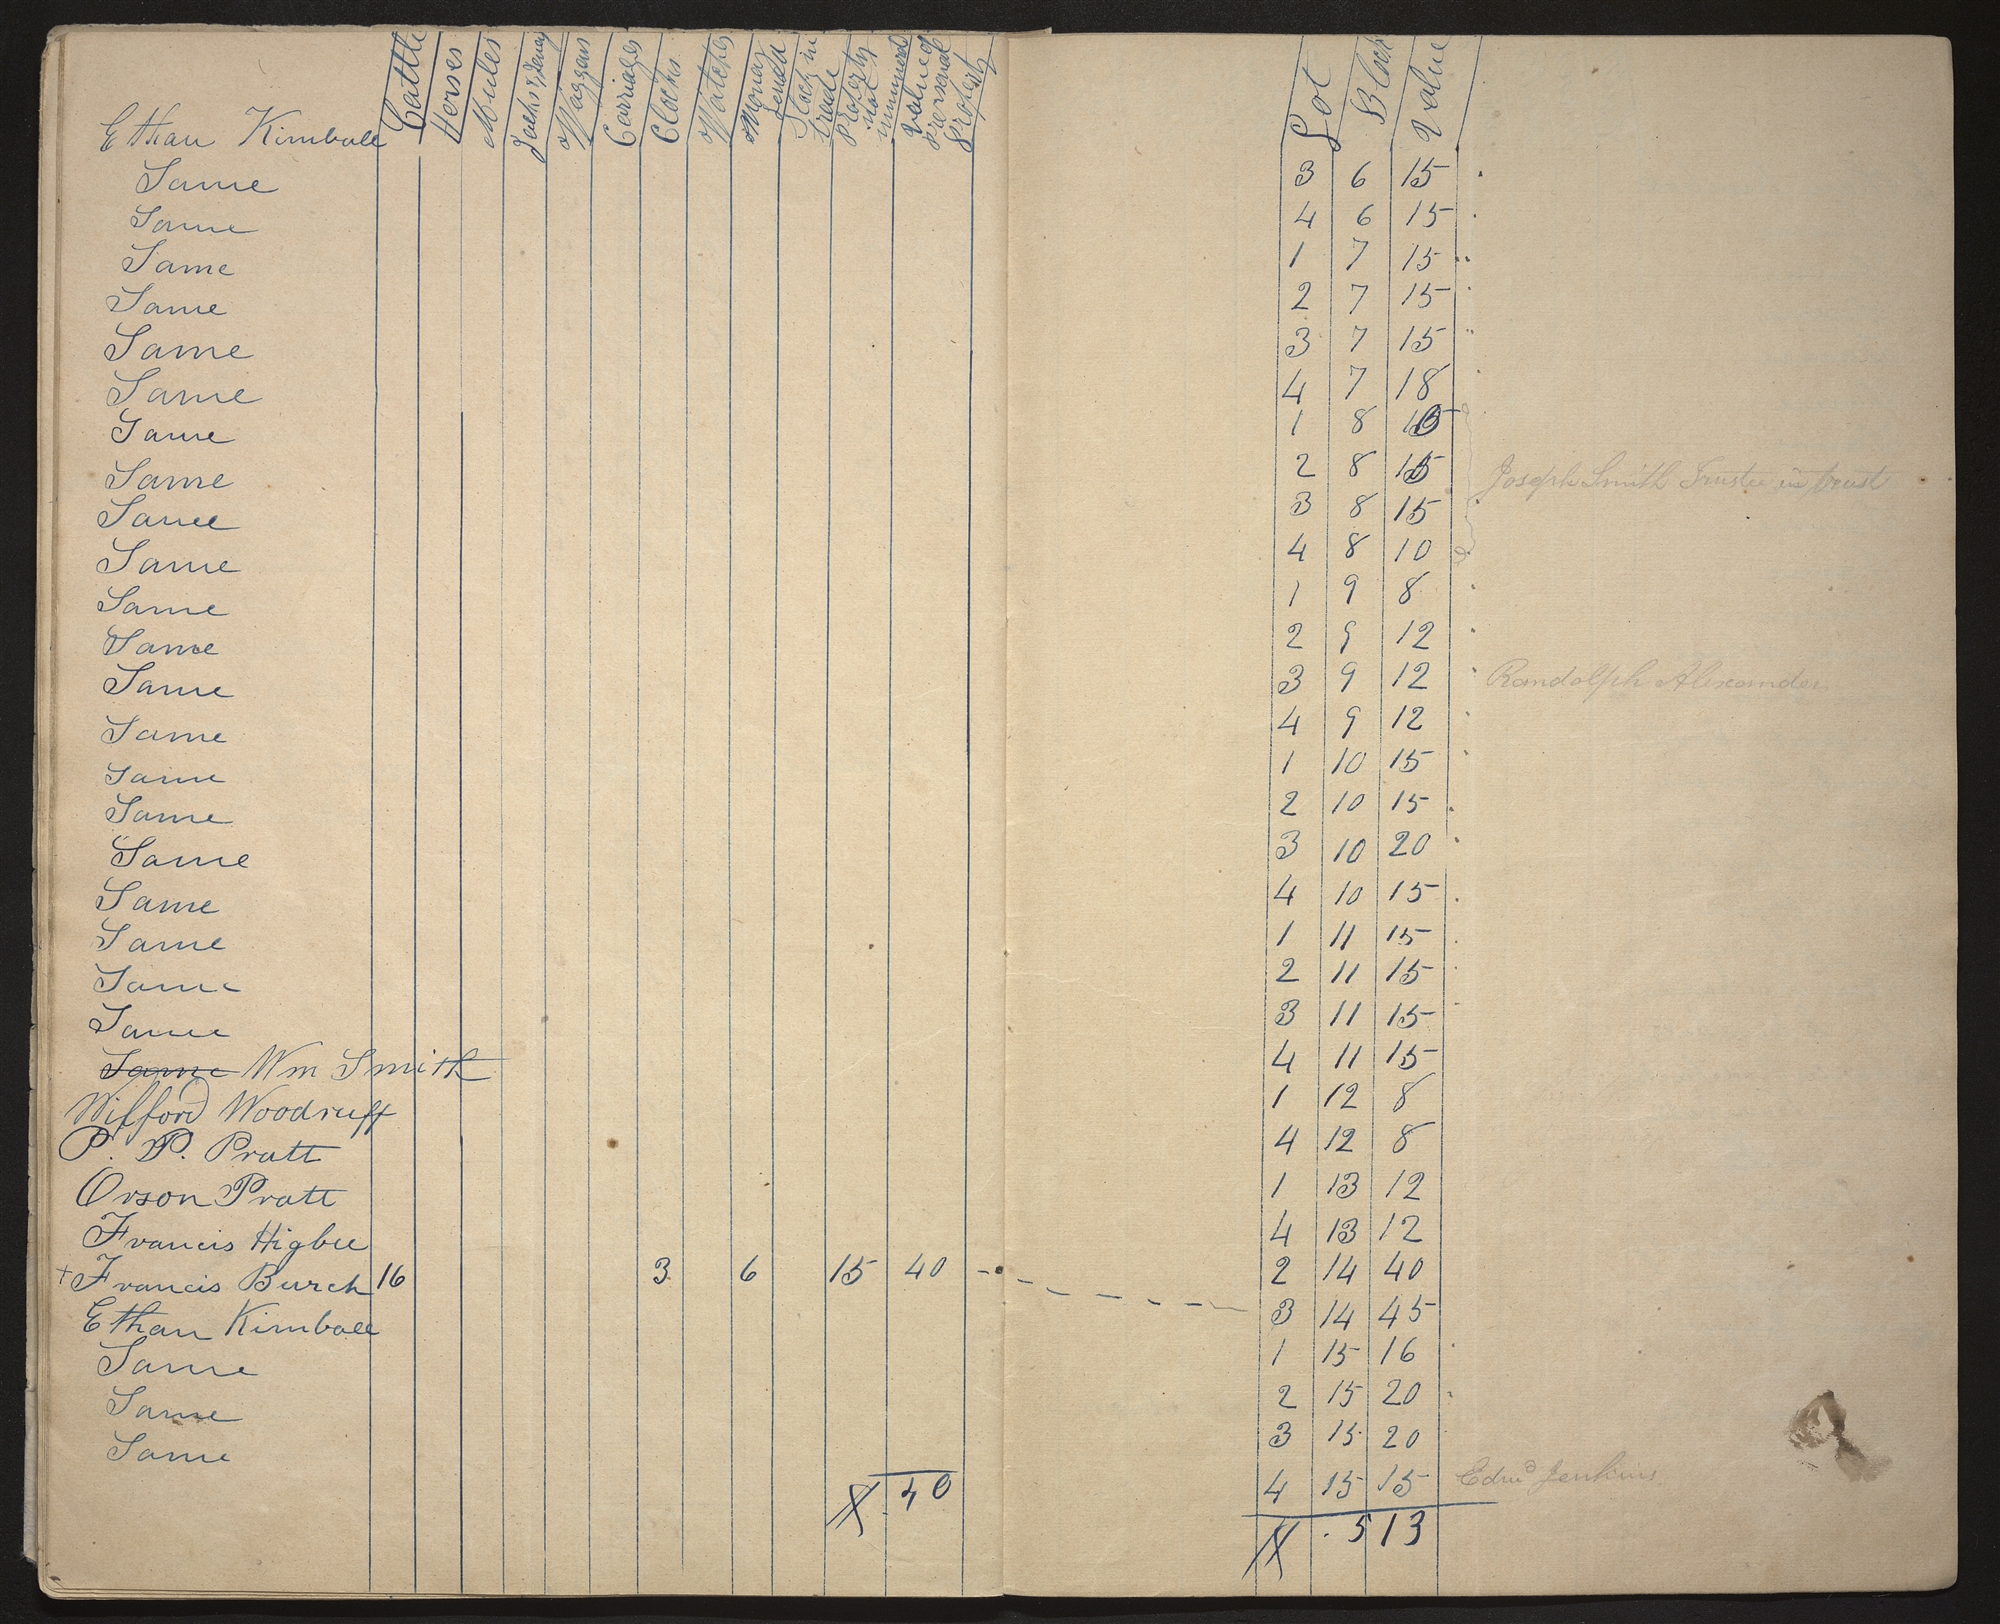 Cattle Horses Mules Jacks & Jenny Waggons Carriages Clocks Watches Money Stock in trade Property not Value of Personal Property Lot Block Value
Ethan Kimball 3 6 15
Same 4 6 15
Same 1 7 15
Same 2 7 15
Same 3 7 15
Same 4 7 18
Same 1 8 15
Same 2 8 15 Joseph Smith Trustee in trust
Same 3 8 15
Same 4 8 10
Same 1 9 8
Same 2 9 12
Same 3 9 12 Randolph Alexander
Same 4 9 12
Same 1 10 15
Same 2 10 15
Same 3 10 20
Same 4 10 15
Same 1 11 15
Same 2 11 15
Same 3 11 15
Same 4 11 15
Same Wm Smith 1 12 8
Wilford Woodruff 4 12 8
P. P. Pratt 1 13 12
Orson Pratt 4 13 12
Francis Higbee 2 14 40
+ Francis Burch 16 3 6 15 40 - - - - - - 3 14 45
Ethan Kimball 1 15 16
Same 2 15 20
Same 3 15 20
Same 4 15 15 Edmd Jenkins
X 40 X 513